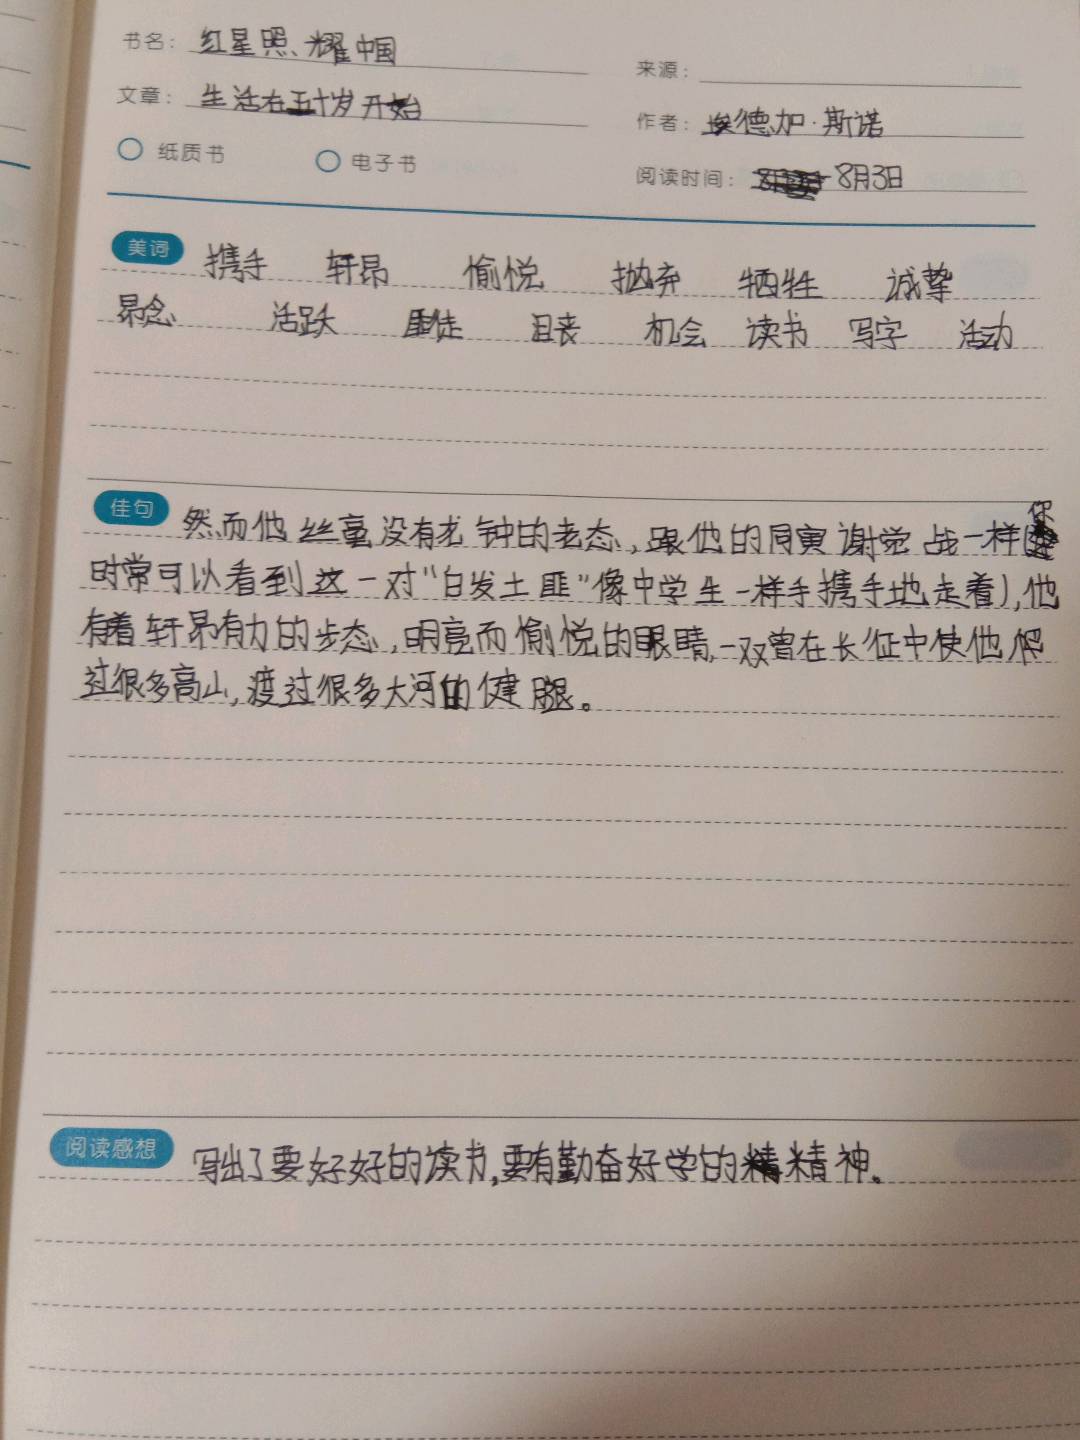 书名: 红星照耀中国
来源:
文章: 生活在五十岁开始
作者: 埃德加·斯诺
纸质书 电子书
阅读时间: 8月3日
美词 携手 轩昂 愉悦 抛弃 牺牲 诚挚
活跃 沮丧 机会 读书 写字 活动
佳句 然而他丝毫没有龙钟的老态,跟他的同寅谢觉战一样(你
时常可以看到这一对“白发土匪”像中学生一样手携手地走着),他
有着轩昂有力的步态,明亮而愉悦的眼睛,一双曾在长征中使他爬
过很多高山,渡过很多大河的健腿。
阅读感想 写出了要好好的读书,要有勤奋好学的精神。